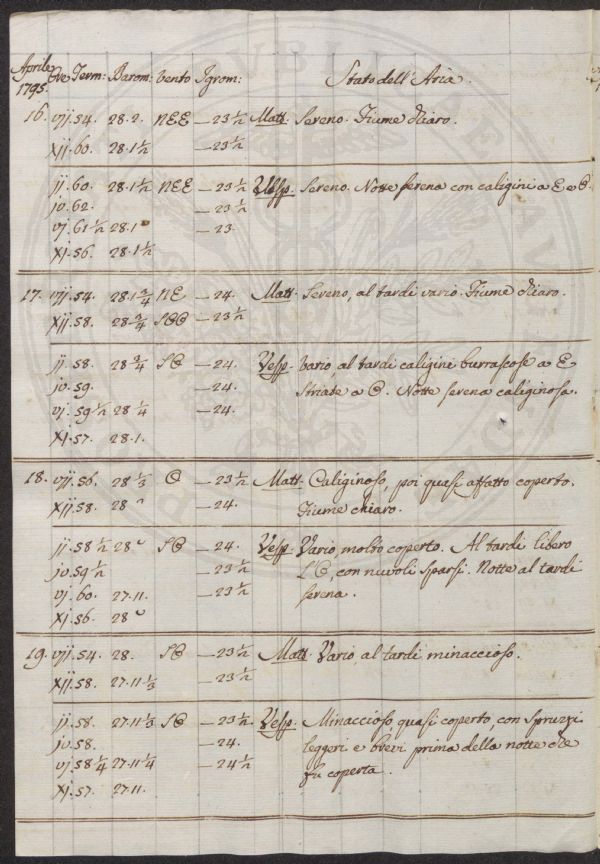 Aprile 1795. Ore Term: Barom: Vento Igrom: Stato dell'Aria.
16. vij. 54. 28.2. NEE — 23 ½ Matt. Sereno. Fiume chiaro.
xij. 60. 28.1½ — 23½
ij. 60. 28.1½ NEE — 23½ Vesp. Sereno. Notte serena con caligini a E e O.
iv. 62. — 23½
vj. 61½ 28.1 — 23.
xj. 56. 28.1½
17. vij. 54. 28.1¾ NE — 24. Matt. Sereno, al tardi vario. Fiume chiaro.
xij. 58. 28.¾ SOO — 23½
ij. 58. 28¾ SO — 24. Vesp. Vario, al tardi caligini burrascose a E
iv. 59. — 24. striate a O. Notte serena caliginosa.
vj. 59½ 28¼ — 24.
xj. 57. 28.1.
18. vij. 56. 28⅓ O — 23½ Matt. Caliginoso, poi quasi affatto coperto.
xij. 58. 28 — 24. Fiume chiaro.
ij. 58½ 28 SO — 24. Vesp. Vario, molto coperto. Al tardi libero
iv. 59½ — 23½ l'O, con nuvoli sparsi. Notte al tardi
vj. 60. 27.11. — 23½ serena.
xj. 56. 28
19. vij. 54. 28. SO — 23½ Matt. Vario, al tardi minaccioso.
xij. 58. 27.11⅓ — 23½
ij. 58. 27.11⅓ SO — 23½ Vesp. Minaccioso, quasi coperto, con spruzzi
iv. 58. — 24. leggeri e brevi prima della notte che
vj. 58¼ 27.11¼ — 24½ fù coperta.
xj. 57. 27.11.